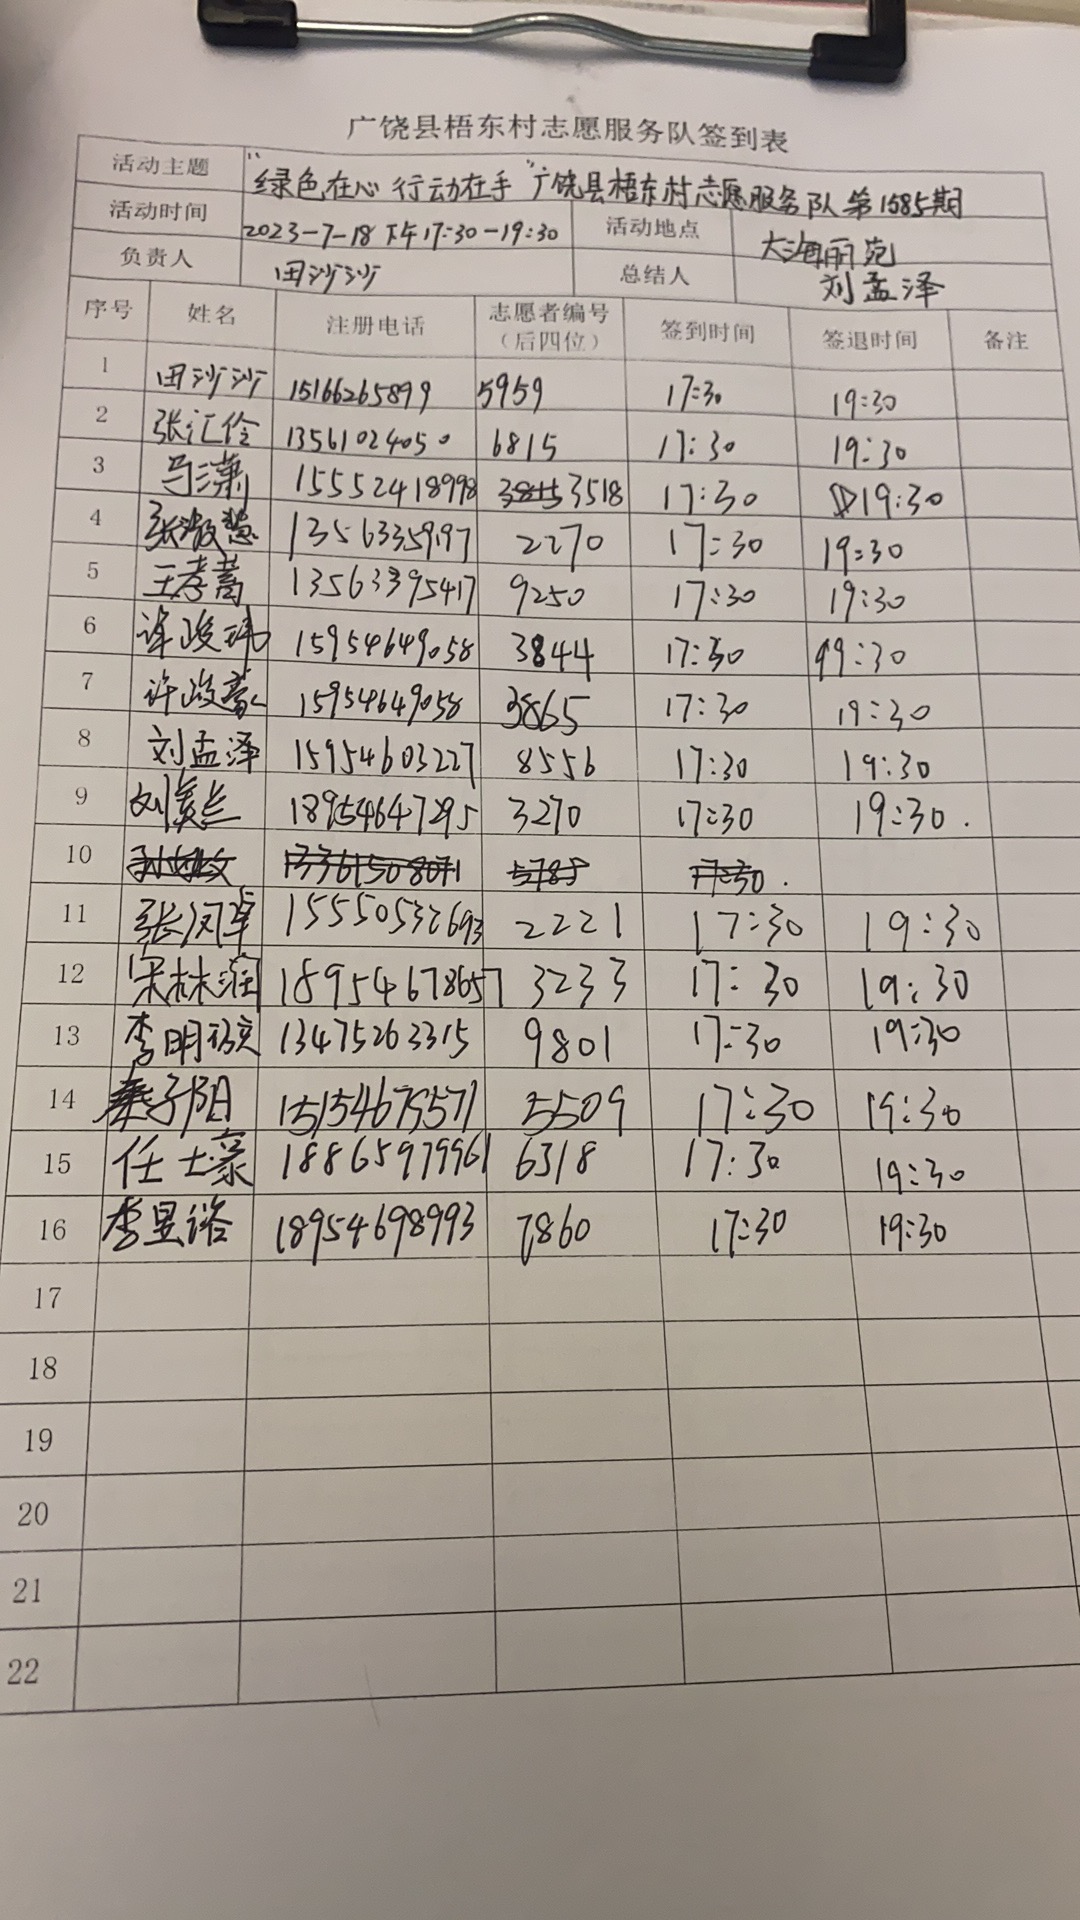 广饶县梧东村志愿服务队签到表
活动主题 "绿色在心 行动在手" 广饶县梧东村志愿服务队第1585期
活动时间 2023-7-18 下午17:30-19:30 活动地点 大海丽苑
负责人 田沙沙 总结人 刘孟泽
序号 姓名 注册电话 志愿者编号（后四位） 签到时间 签退时间 备注
1 田沙沙 15166265899 5959 17:30 19:30
2 张汇伶 13561024050 6815 17:30 19:30
3 马潇 15552418998 3518 17:30 19:30
4 张淑慧 13563359197 2270 17:30 19:30
5 王孝蒿 13563395417 9250 17:30 19:30
6 许峻玮 15954649058 3844 17:30 19:30
7 许峻豪 15954649058 3865 17:30 19:30
8 刘孟泽 15954603227 8556 17:30 19:30
9 刘 兰 18954647295 3270 17:30 19:30.
10 13361508071 5785 17:30.
11 张凤卓 15550532693 2221 17:30 19:30
12 宋林润 18954678657 3233 17:30 19:30
13 李明 13475263315 9801 17:30 19:30
14 秦子阳 15154679571 5509 17:30 19:30
15 任士豪 18865979961 6318 17:30 19:30
16 李昱谘 18954698993 7860 17:30 19:30
17
18
19
20
21
22